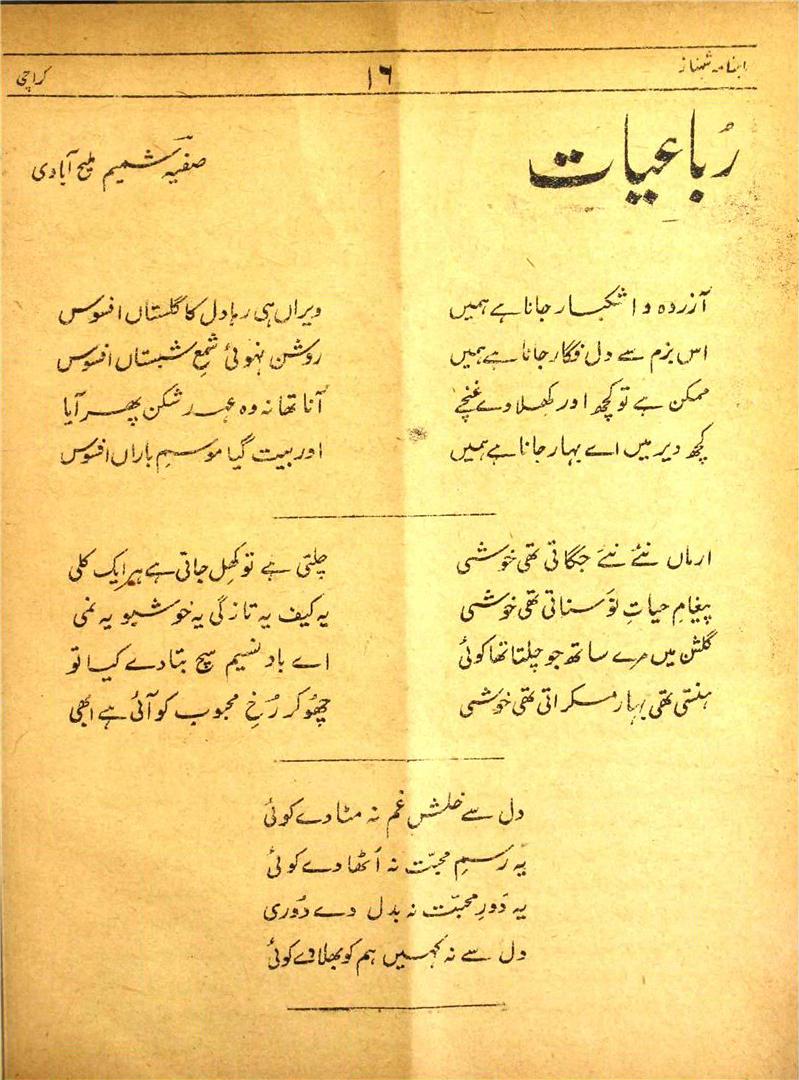 ماہنامہ شہناز
۱۶
کراچی
رُباعیات
صفیہ شمیم ملیح آبادی
آزردہ و اشکبار جانا ہے ہمیں
اس بزم سے دل فگار جانا ہے ہمیں
ممکن ہے تو کچھ اور کھلا دے غنچے
کچھ دیر میں اے بہار جانا ہے ہمیں
ویراں ہی رہا دل کا گلستاں افسوس
روشن نہوئی شمعِ شبستاں افسوس
آنا تھا نہ وہ عہد شکن پھر آیا
اور بیت گیا موسمِ باراں افسوس
ارماں نئے نئے جگاتی تھی خوشی
پیغامِ حیاتِ نَو سناتی تھی خوشی
گلشن میں مرے ساتھ جو چلتا تھا کوئی
ہنستی تھی بہار مسکراتی تھی خوشی
چلتی ہے تو کھِل جاتی ہے ہر ایک کلی
یہ کیف یہ تازگی یہ خوشبو یہ نمی
اے باد نسیم سچ بتا دے کیا تو
چھُو کر رُخِ محبوب کو آئی ہے ابھی
دل سے خلشِ غم نہ مٹا دے کوئی
یہ رسمِ محبّت نہ اُٹھا دے کوئی
یہ دَورِ محبّت نہ بدل دے دُوری
دل سے نہ کہیں ہم کو بھلا دے کوئی